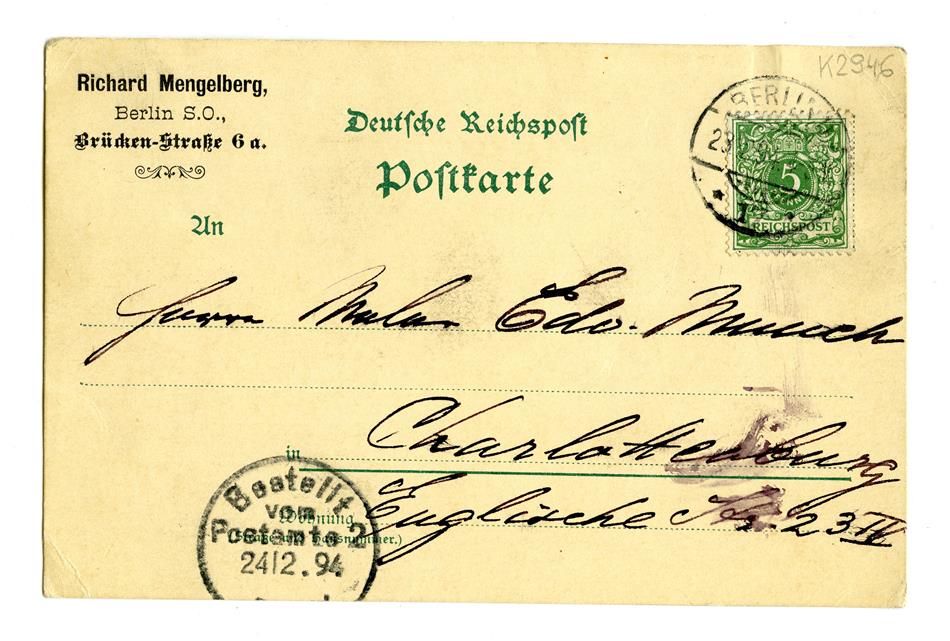 K2946
Richard Mengelberg,
Berlin S.O.,
Brücken-Straße 6 a.
Deutsche Reichspost
Postkarte
An
BERLIN
5
REICHSPOST
Herrn Maler Edv. Munch
in Charlottenburg
Wohnung Englische Str. 23 IV
(Straße und Hausnummer.)
Bestellt
vom
Postamte 2
24/2.94